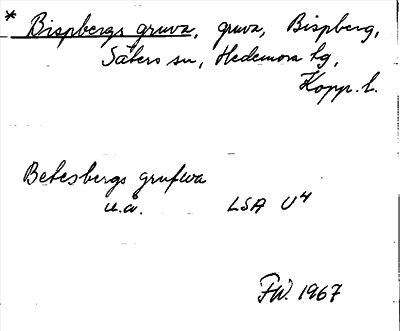 * Bispbergs gruva, gruva, Bispberg,
Säters sn, Hedemora hg,
Kopp. l.
Betesbergs grufwa
u.å. LSA U4
FW. 1967